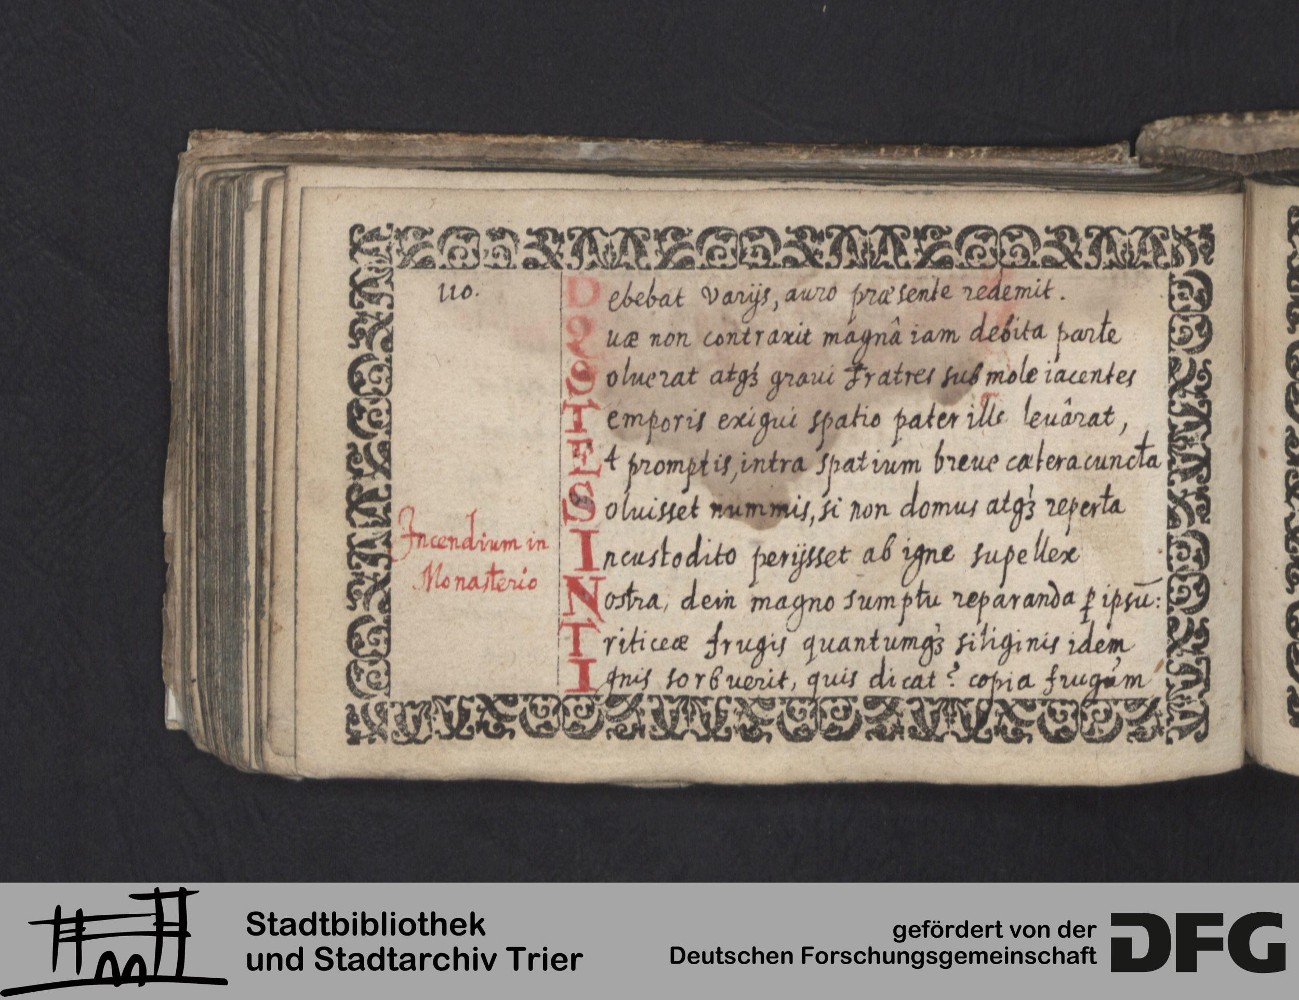 110.
Debebat varijs, auro præsente redemit.
Quæ non contraxit magnâ iam debita parte
Soluerat atqȝ graui Fratres sub mole iacentes
Temporis exigui spatio pater ille leuârat,
Et promptis, intra spatium breue cætera cuncta
Soluisset nummis, si non domus atqȝ reperta
Incustodito perijsset ab igne supellex
Incendium in
Monasterio
Nostra, dein magno sumptu reparanda ꝑ ipsū:
Triticeæ frugis quantumqȝ siliginis idem
Ignis sorbuerit, quis dicat? copia frugum
Stadtbibliothek
und Stadtarchiv Trier
gefördert von der
Deutschen Forschungsgemeinschaft
DFG